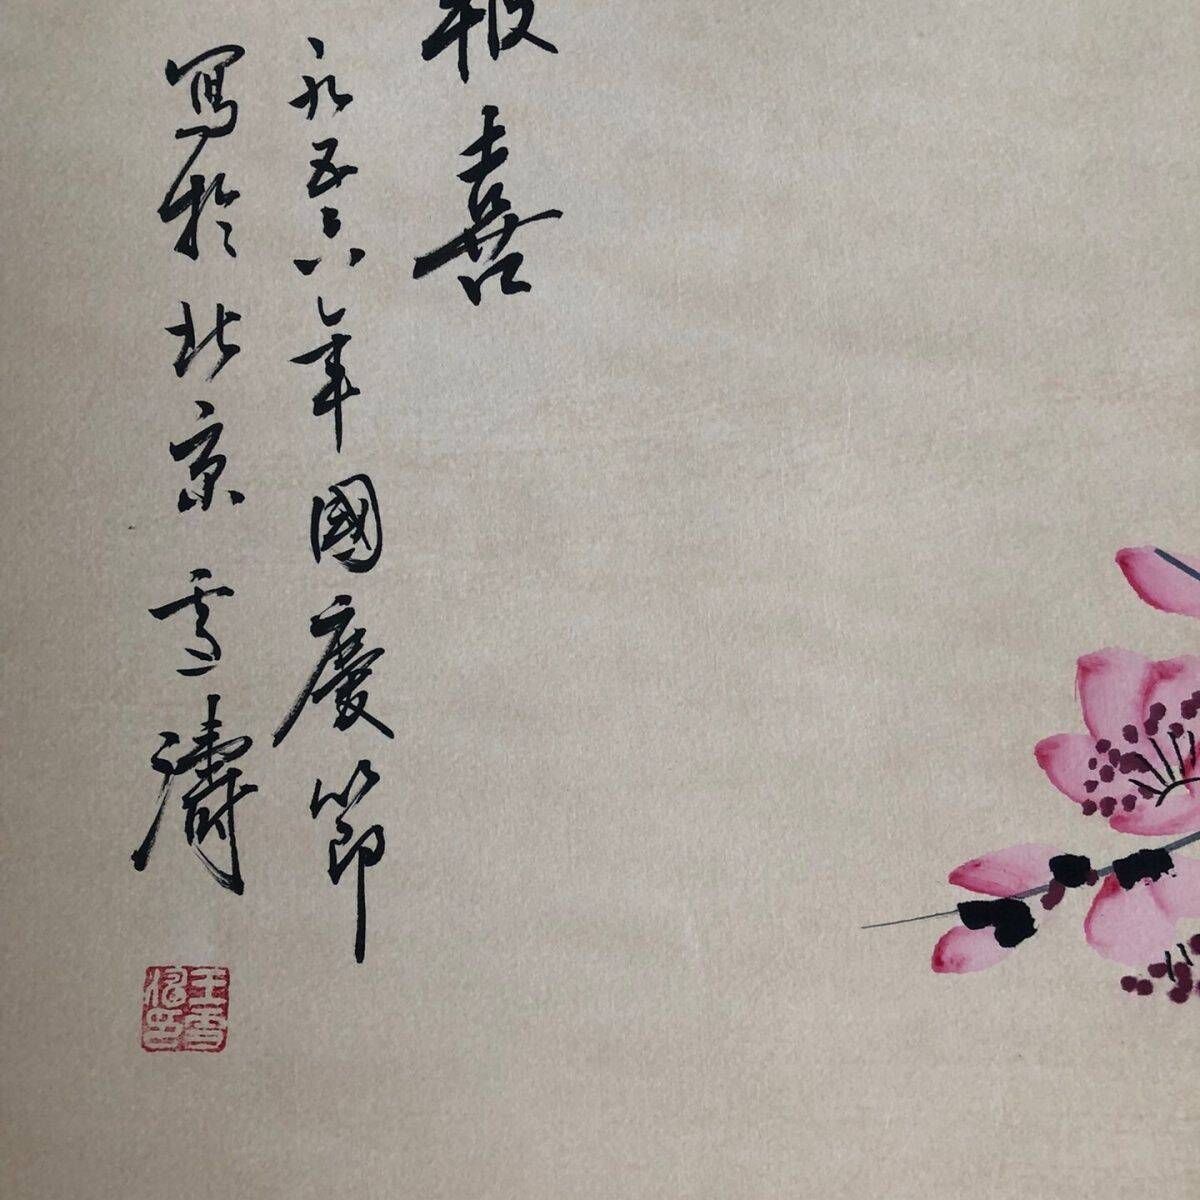 報喜
一九五六年國慶節
寫於北京雪濤